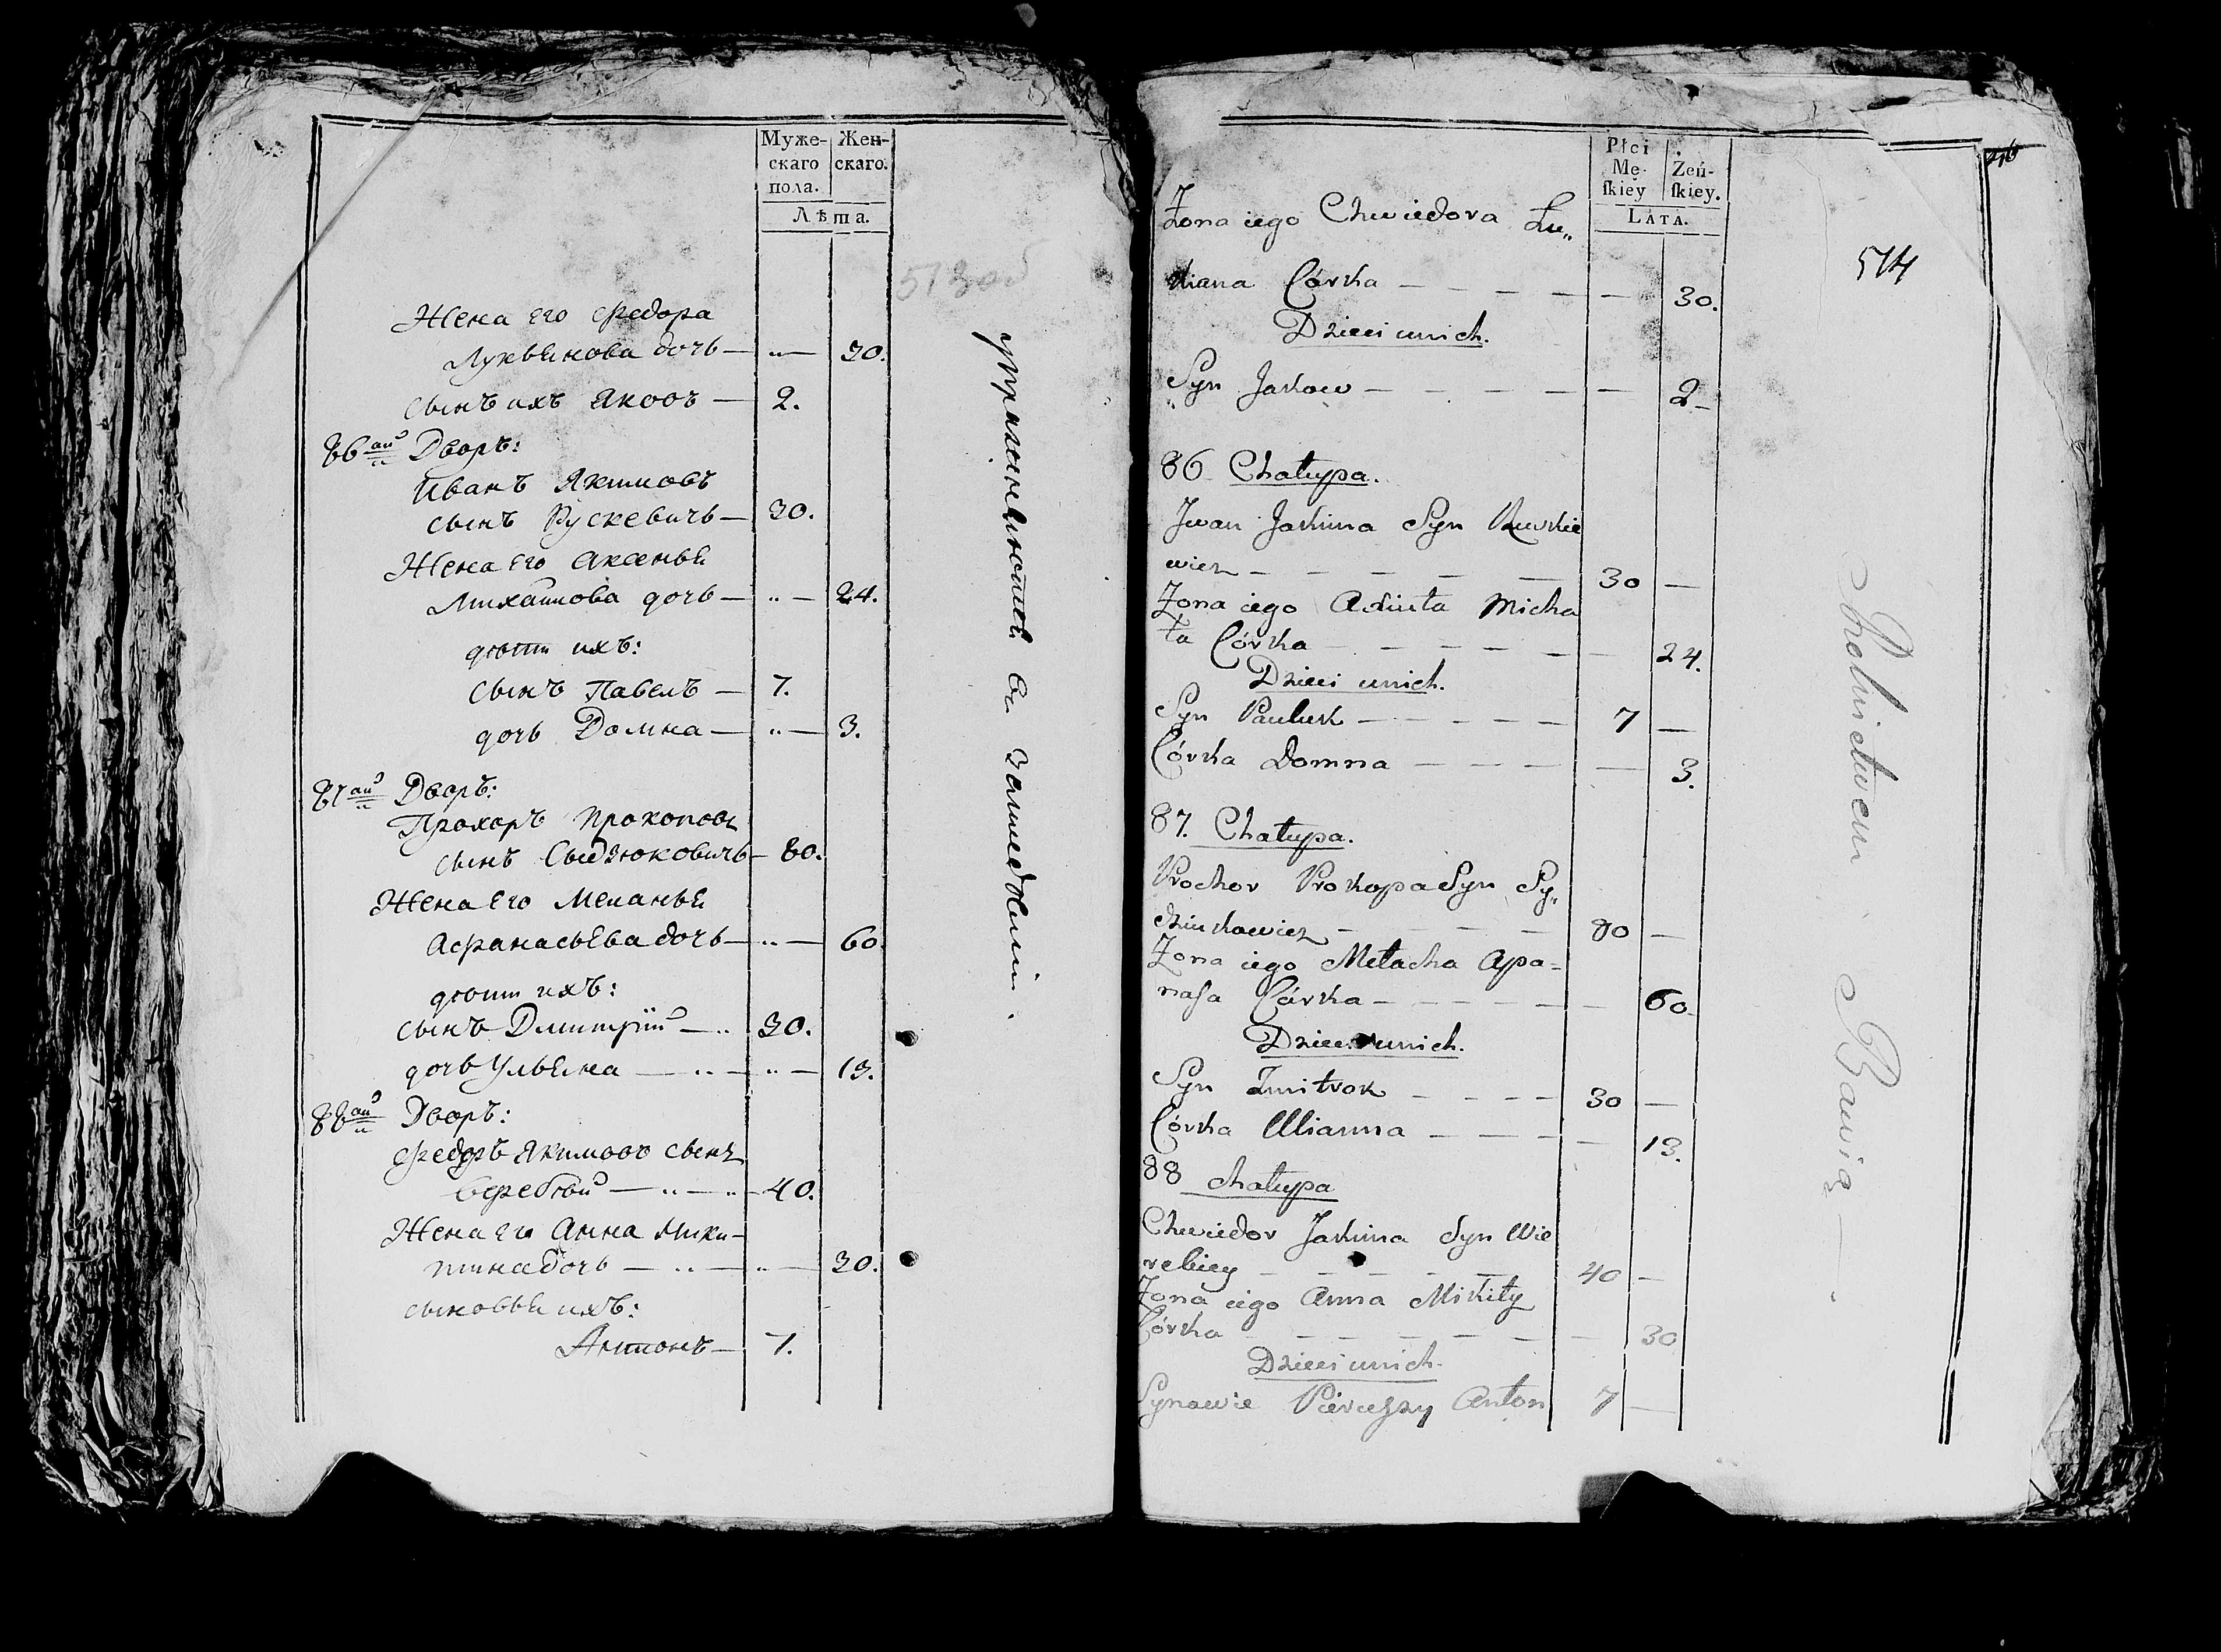 Муже-
скаго
пола.
Жен-
скаго.
Лѣта.
513об
Жена его Федора
Лукьянова дочь — „— 30.
сынъ ихъ Яковъ — 2.
86ай Дворъ:
Иванъ Якимовъ
сынъ Рускевичь — 30.
Жена его Аксенья
Михайлова дочь — „— 24.
дѣти ихъ:
сынъ Павелъ — 7.
дочь Домна — „— 3.
87ай Дворъ:
Прохоръ Прокоповъ
сынъ Сыдзюковичь — 80.
Жена его Меланья
Афанасьева дочь — „— 60.
дѣти ихъ:
сынъ Дмитрій — „ 30.
дочь Ульяна — „ — „— 13.
88ай Дворъ:
Федоръ Якимовъ сынъ
Веребѣй — „ — „ — 40.
Жена его Анна Мики-
тина дочь — „ — „— 30.
сыновья ихъ:
Антонъ — 7.
Płci
Mę-
ſkiey
Żeń-
ſkiey.
LATA.
514
Zona iego Chwiedora Łu„
kiana Córka — — — — — 30.
Dzieci unich.
Syn Jakow — — — — — 2 —
86 Chałupa.
Jwan Jakima Syn Ruskie
wicz — — — — — 30 —
Zona iego Axiuta Micha
ła Córka — — — — — — 24.
Dzieci unich.
Syn Pauluk — — — — — 7 —
Córka Domna — — — — 3.
87. Chałupa.
Prochor Prokopa Syn Sy„
dziukowicz — — — — 80 —
Zona iego Małacha Apa=
naſa Córka — — — — — — 60.
Dzieci unich.
Syn Zmitrok — — — — 30 —
Córka Ulianna — — — — — 13.
88 Chałupa
Chwiedor Jakima Syn Wie
rebiey — — — — — 40 —
Zona iego Anna Mikity
Córka — — — — — — — 30
Dzieci unich.
Synowie Pierwſzy Anton 7 —
Rolnictwem Bawią —